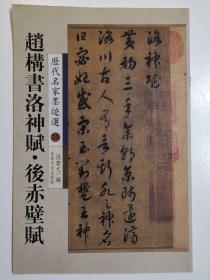 趙構書洛神賦·後赤壁賦
歷代名家墨迹選
孫寶文 編
洛神賦
黄初三年余朝京師還濟
洛川古人有言斯水之神名
曰宓妃感宋玉對楚王神